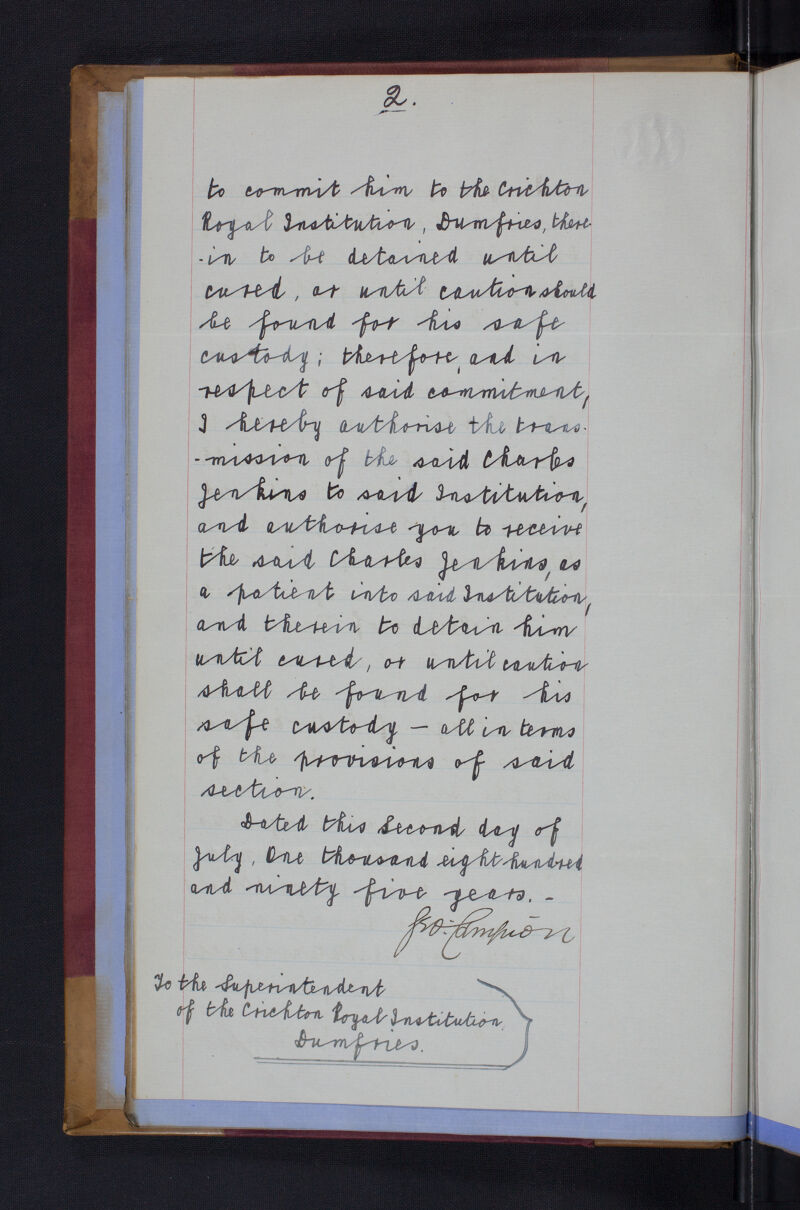 2.
to commit him to the Crichton
Royal Institution, Dumfries, there-
-in to be detained until
cured, or until caution should
be found for his safe
custody; therefore, and in
respect of said commitment,
I hereby authorise the trans-
-mission of the said Charles
Jenkins to said Institution,
and authorise you to receive
the said Charles Jenkins, as
a patient into said Institution,
and therein to detain him
until cured, or until caution
shall be found for his
safe custody — all in terms
of the provisions of said
section.
Dated this Second day of
July, One thousand eight hundred
and ninety five years. -
Campion
To the Superintendent
of the Crichton Royal Institution,
Dumfries.